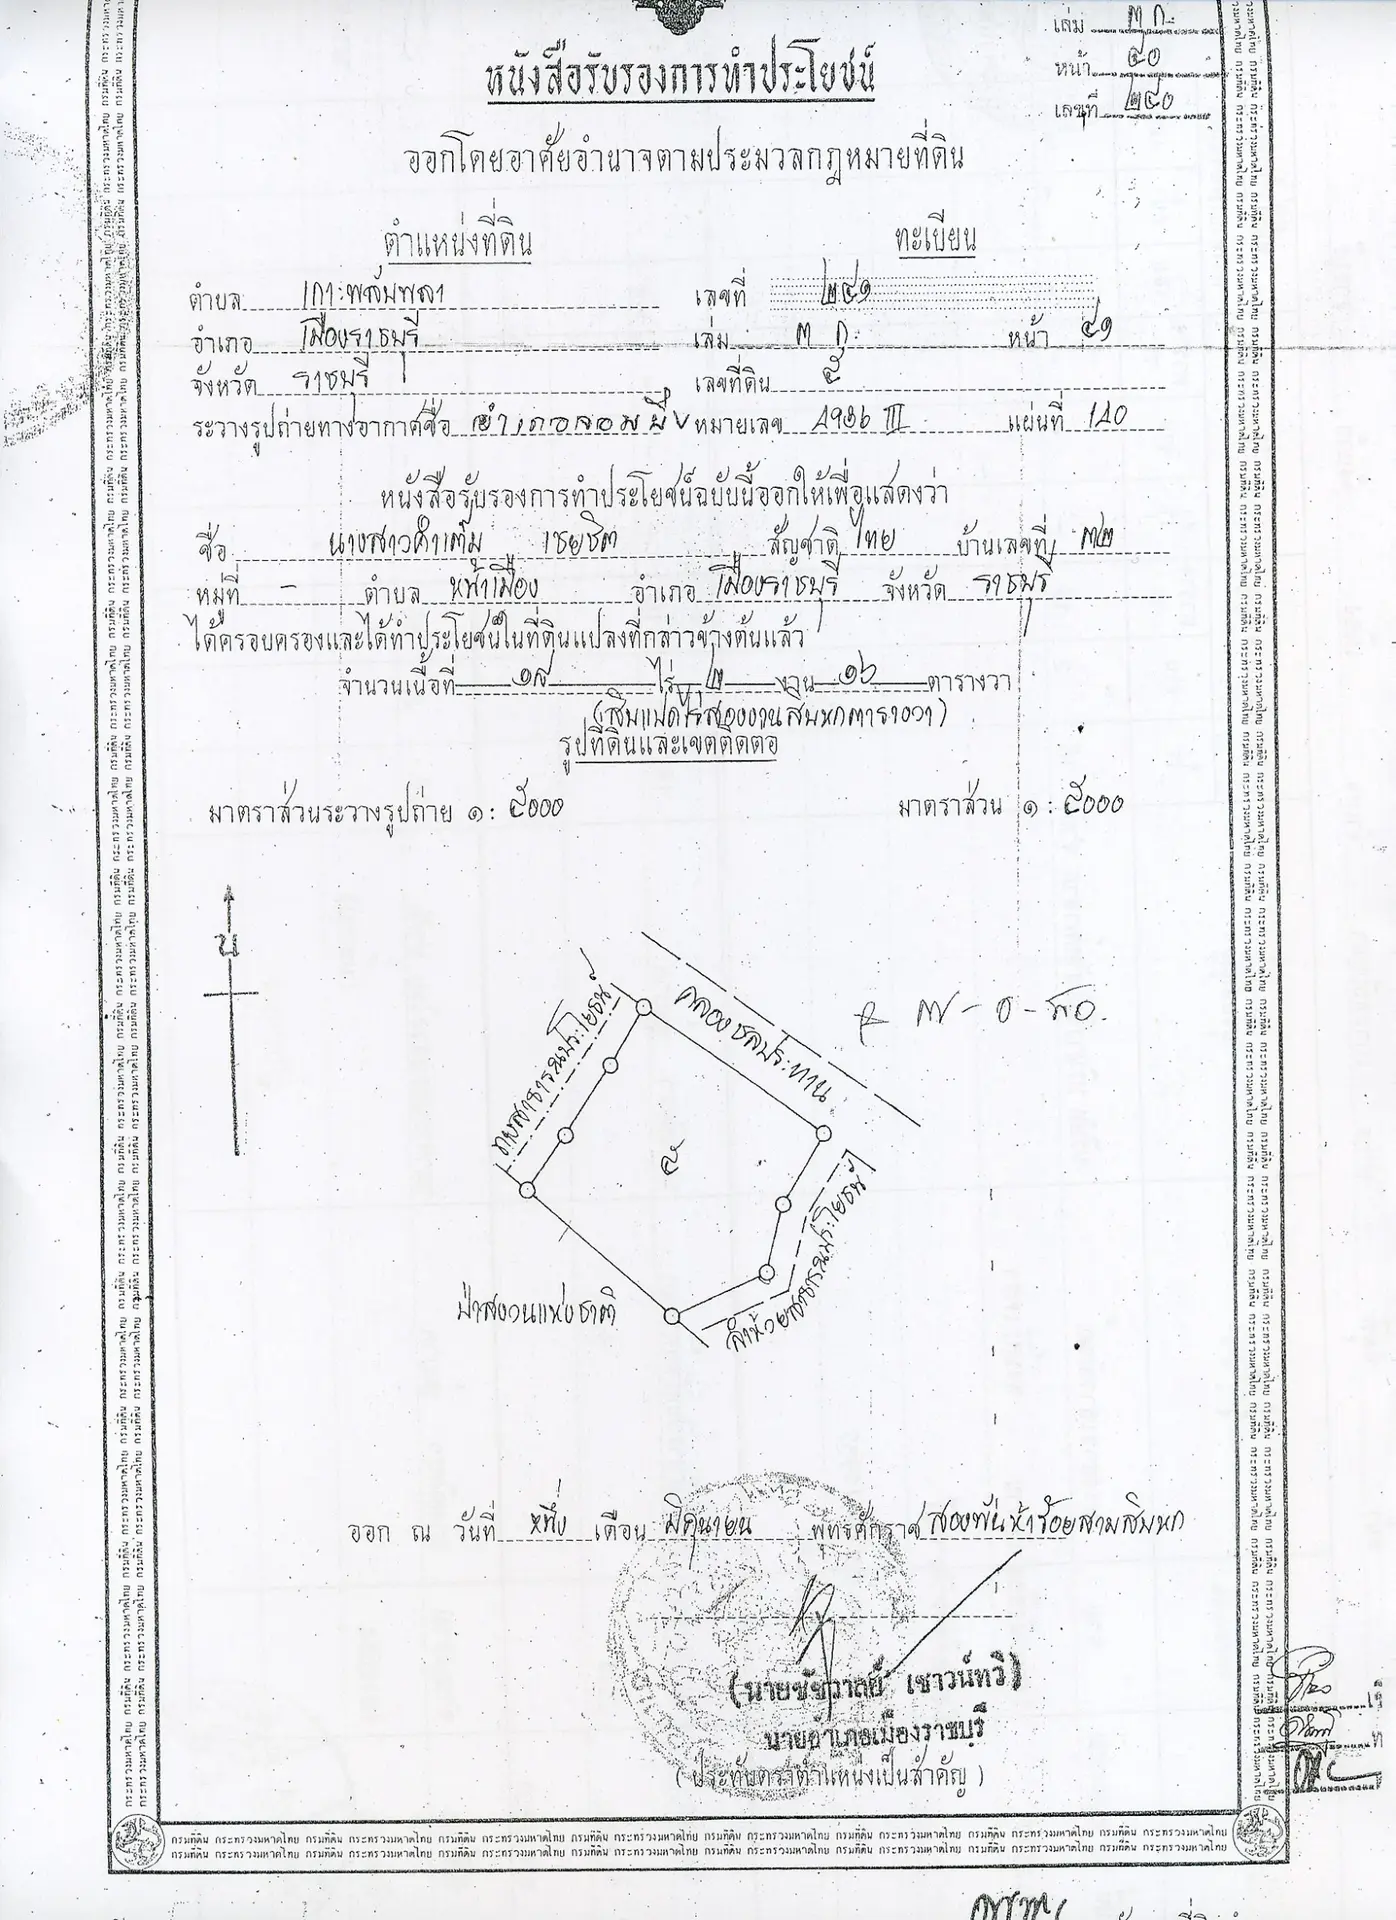 เล่ม ๓ ก.
หนังสือรับรองการทำประโยชน์
หน้า ๕๑
เลขที่ ๒๕๑
ออกโดยอาศัยอำนาจตามประมวลกฎหมายที่ดิน
ตำแหน่งที่ดิน ทะเบียน
ตำบล เกาะพลับพลา เลขที่ ๒๕๑
อำเภอ เมืองราชบุรี เล่ม ๓ ก. หน้า ๕๑
จังหวัด ราชบุรี เลขที่ดิน ๕
ระวางรูปถ่ายทางอากาศชื่อ อำเภอจอมบึง หมายเลข 4936 III แผ่นที่ 140
หนังสือรับรองการทำประโยชน์ฉบับนี้ออกให้เพื่อแสดงว่า
ชื่อ นางสาวคำเต็ม เชยชิต สัญชาติ ไทย บ้านเลขที่ ๓๒
หมู่ที่ - ตำบล หน้าเมือง อำเภอ เมืองราชบุรี จังหวัด ราชบุรี
ได้ครอบครองและได้ทำประโยชน์ในที่ดินแปลงที่กล่าวข้างต้นแล้ว
จำนวนเนื้อที่ ๑๘ ไร่ ๒ งาน ๑๖ ตารางวา
(สิบแปดไร่สองงานสิบหกตารางวา)
รูปที่ดินและเขตติดต่อ
มาตราส่วนระวางรูปถ่าย ๑ : ๕๐๐๐ มาตราส่วน ๑ : ๕๐๐๐
น
ทางสาธารณประโยชน์
คลองชลประทาน
ลำห้วยสาธารณประโยชน์
ป่าสงวนแห่งชาติ
ออก ณ วันที่ หนึ่ง เดือน มิถุนายน พุทธศักราช สองพันห้าร้อยสามสิบหก
(นายชัชวาลย์ เชาวน์ทวี)
นายอำเภอเมืองราชบุรี
(ประทับตราตำแหน่งเป็นสำคัญ)
กรมที่ดิน กระทรวงมหาดไทย กรมที่ดิน กระทรวงมหาดไทย กรมที่ดิน กระทรวงมหาดไทย
กรมที่ดิน กระทรวงมหาดไทย กรมที่ดิน กระทรวงมหาดไทย กรมที่ดิน กระทรวงมหาดไทย